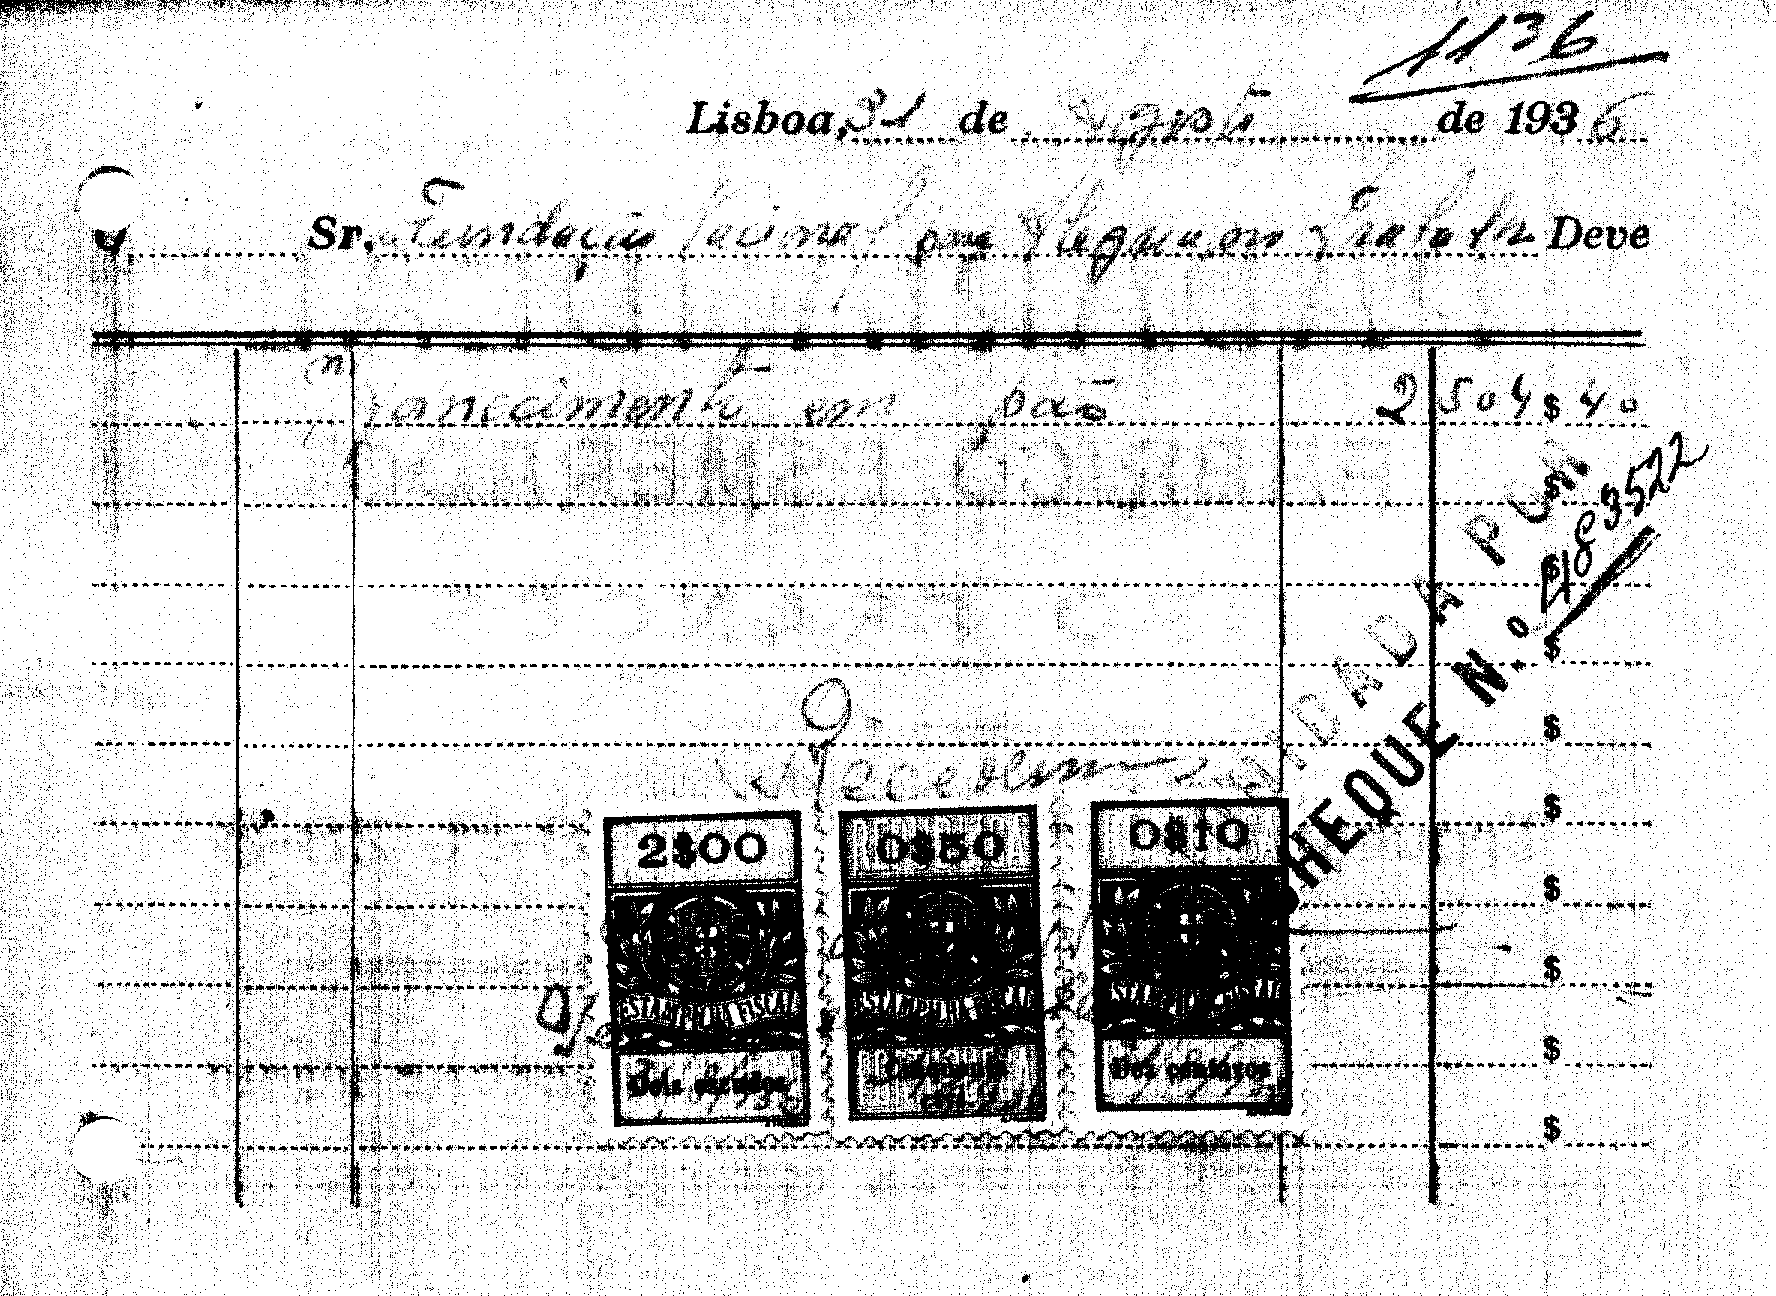 1136
Lisboa, 31 de Agosto de 1936
Sr. Fundação Nacional para Alegria no Trabalho Deve
Fornecimento em pão 2504$40
LIQUIDADA PELO
CHEQUE N.º 483522
Recebemos
2$00 0$50 0$10
ESTAMPILHA FISCAL ESTAMPILHA FISCAL ESTAMPILHA FISCAL
Dois escudos Cincoenta centavos Dez centavos